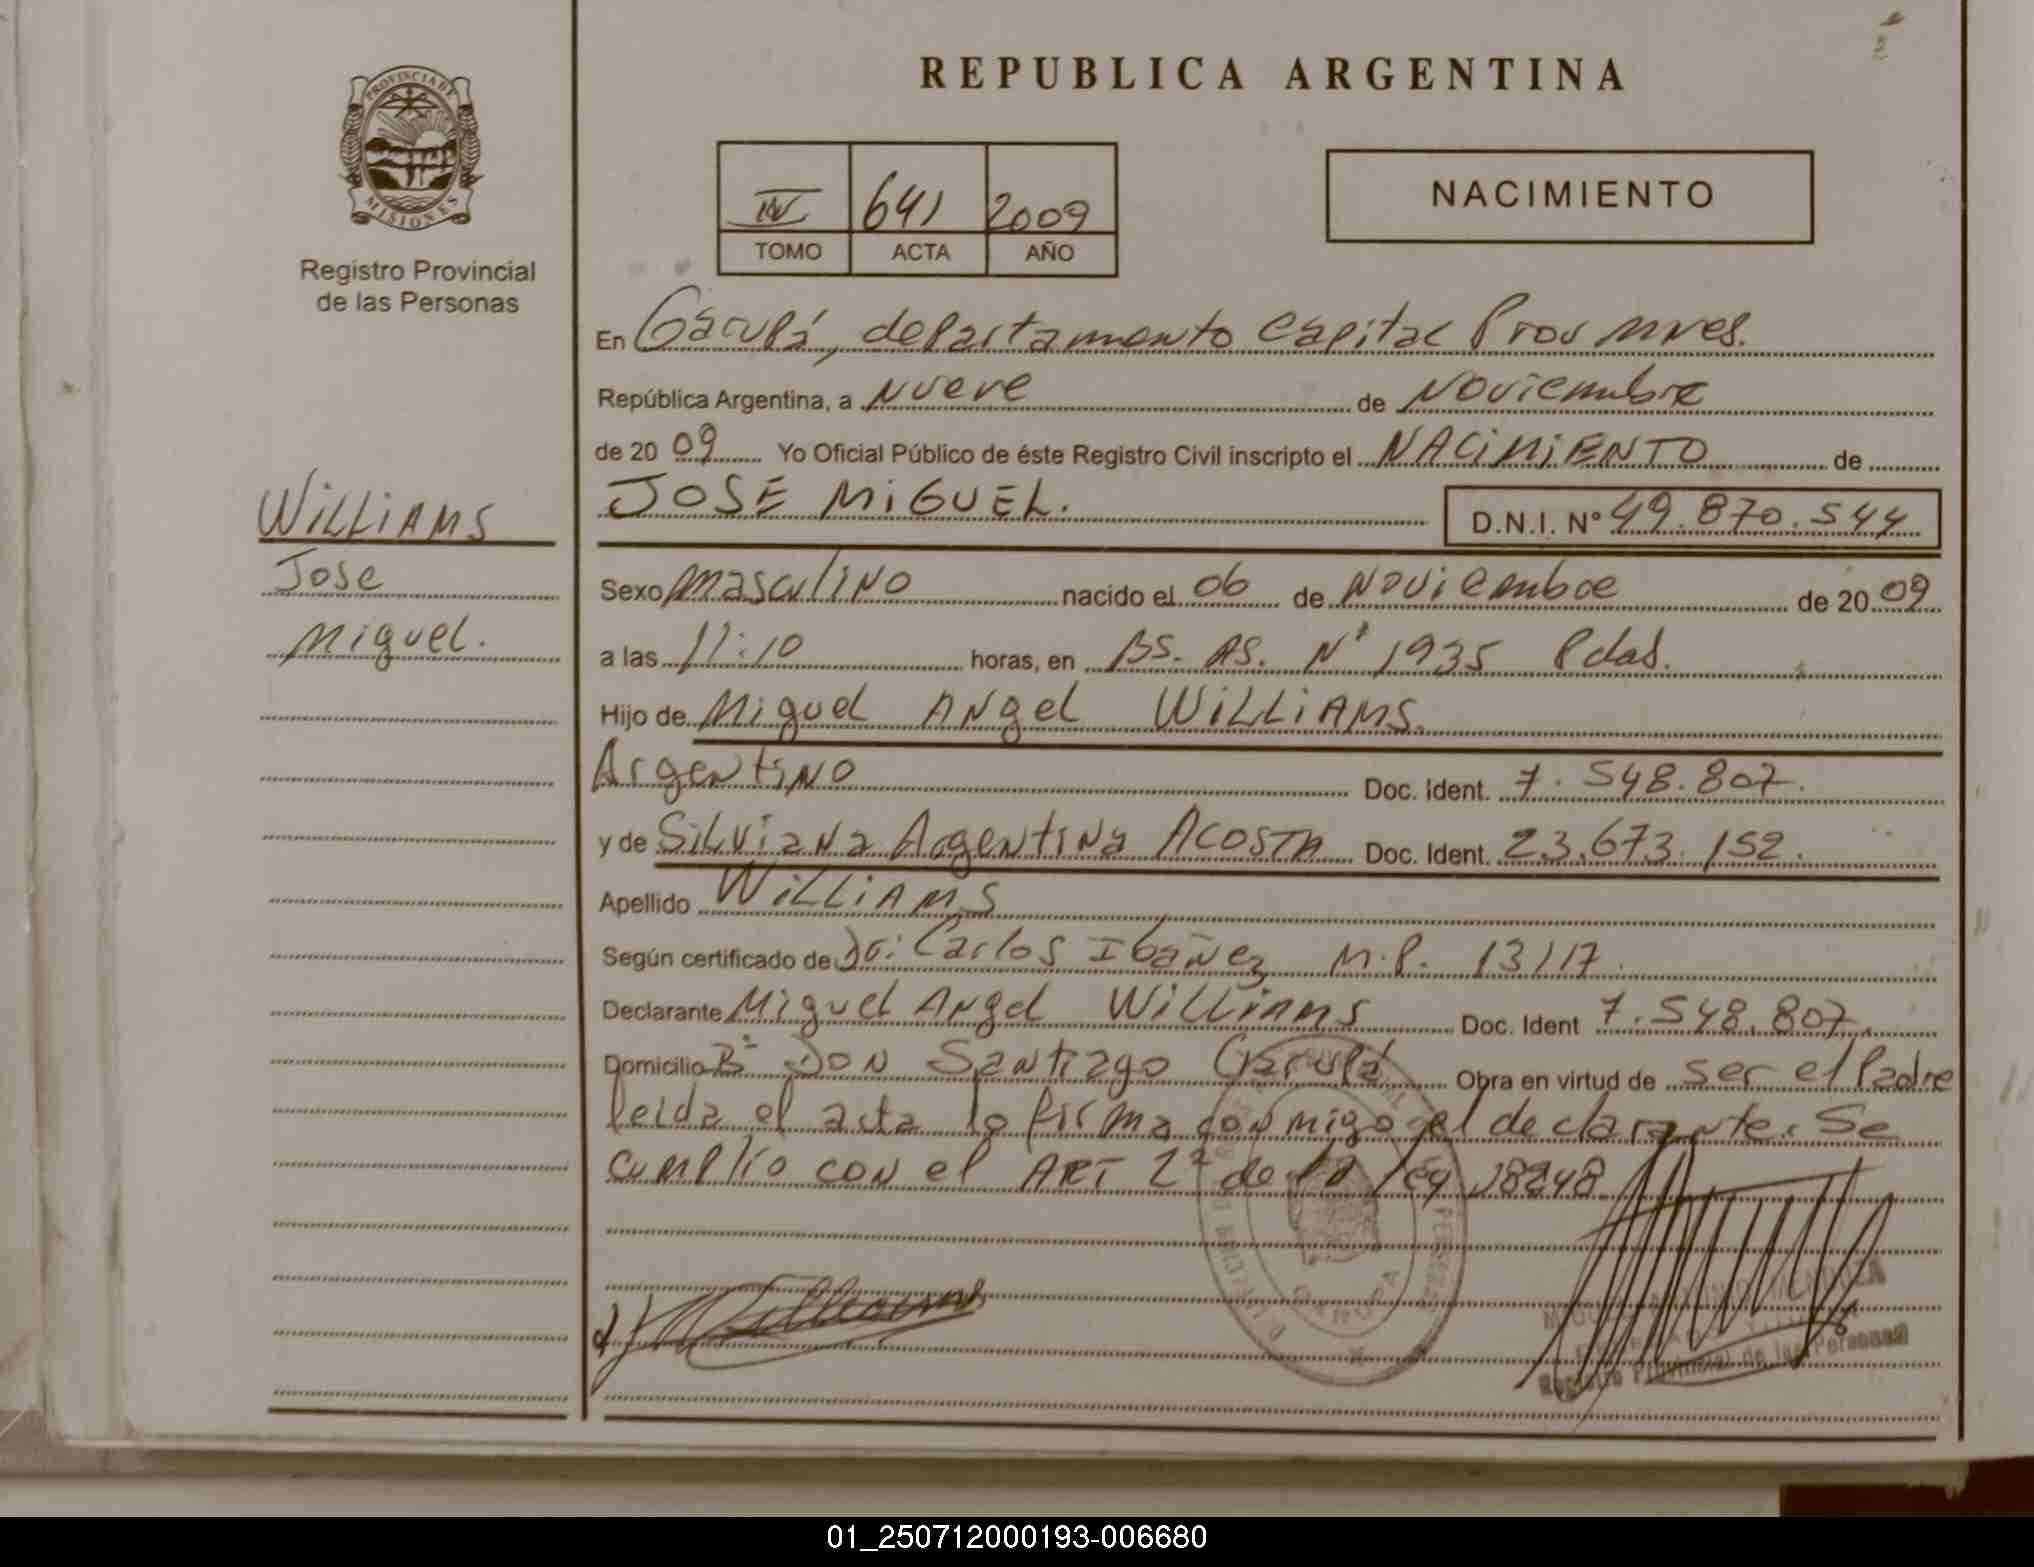 REPUBLICA ARGENTINA
PROVINCIA DE
MISIONES
Registro Provincial
de las Personas
IV 641 2009
TOMO ACTA AÑO
NACIMIENTO
En Garupá, departamento Capital Prov Mnes.
República Argentina, a Nueve de Noviembre
de 20 09 Yo Oficial Público de éste Registro Civil inscripto el NACIMIENTO de
JOSE MIGUEL.
D.N.I. Nº 49.870.544
WILLIAMS
Jose
Miguel.
Sexo masculino nacido el 06 de Noviembre de 20 09
a las 11:10 horas, en BS. AS. Nº 1935 Pdas.
Hijo de Miguel Angel WILLIAMS.
Argentino Doc. Ident. 7.548.807.
y de Silviana Argentina Acosta Doc. Ident. 23.673.152.
Apellido WILLIAMS
Según certificado de Dr: Carlos Ibañez M.P. 13117
Declarante Miguel Angel Williams Doc. Ident 7.548.807.
Domicilio Bº Don Santiago Garupá Obra en virtud de ser el Padre
leida el acta la firma conmigo el declarante. Se
cumplio con el ART 2º de la ley 18248
Williams
GARUPA
MENDOZA
Registro Provincial de las Personas
01_250712000193-006680